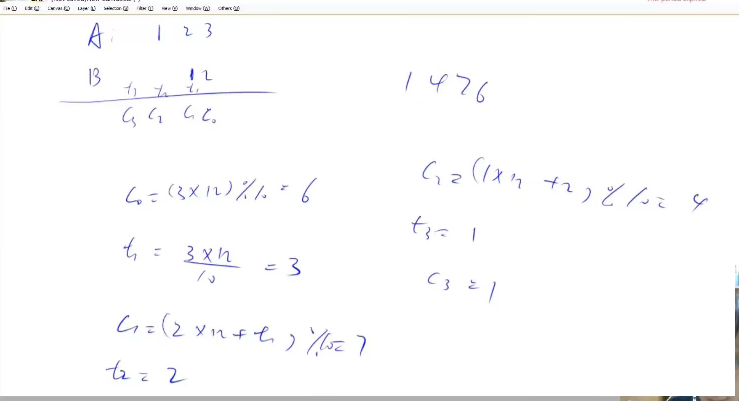 File(1) Edit(2) Canvas(3) Layer(4) Selection(5) Filter(6) View(7) Window(8) Others(0)
A: 1 2 3
B 1 2
t3 t2 t1
C3 C2 C1 C0
1476
C0 = (3 × 12) % 10 = 6
t1 = 3 × 12 / 10 = 3
C1 = (2 × 12 + t1) % 10 = 7
t2 = 2
C2 = (1 × 12 + t2) % 10 = 4
t3 = 1
C3 = 1